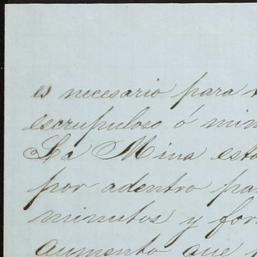 es necesario para
escrupuloso ó min
La Mina est
por adentro pa
minutos y for
aumento que